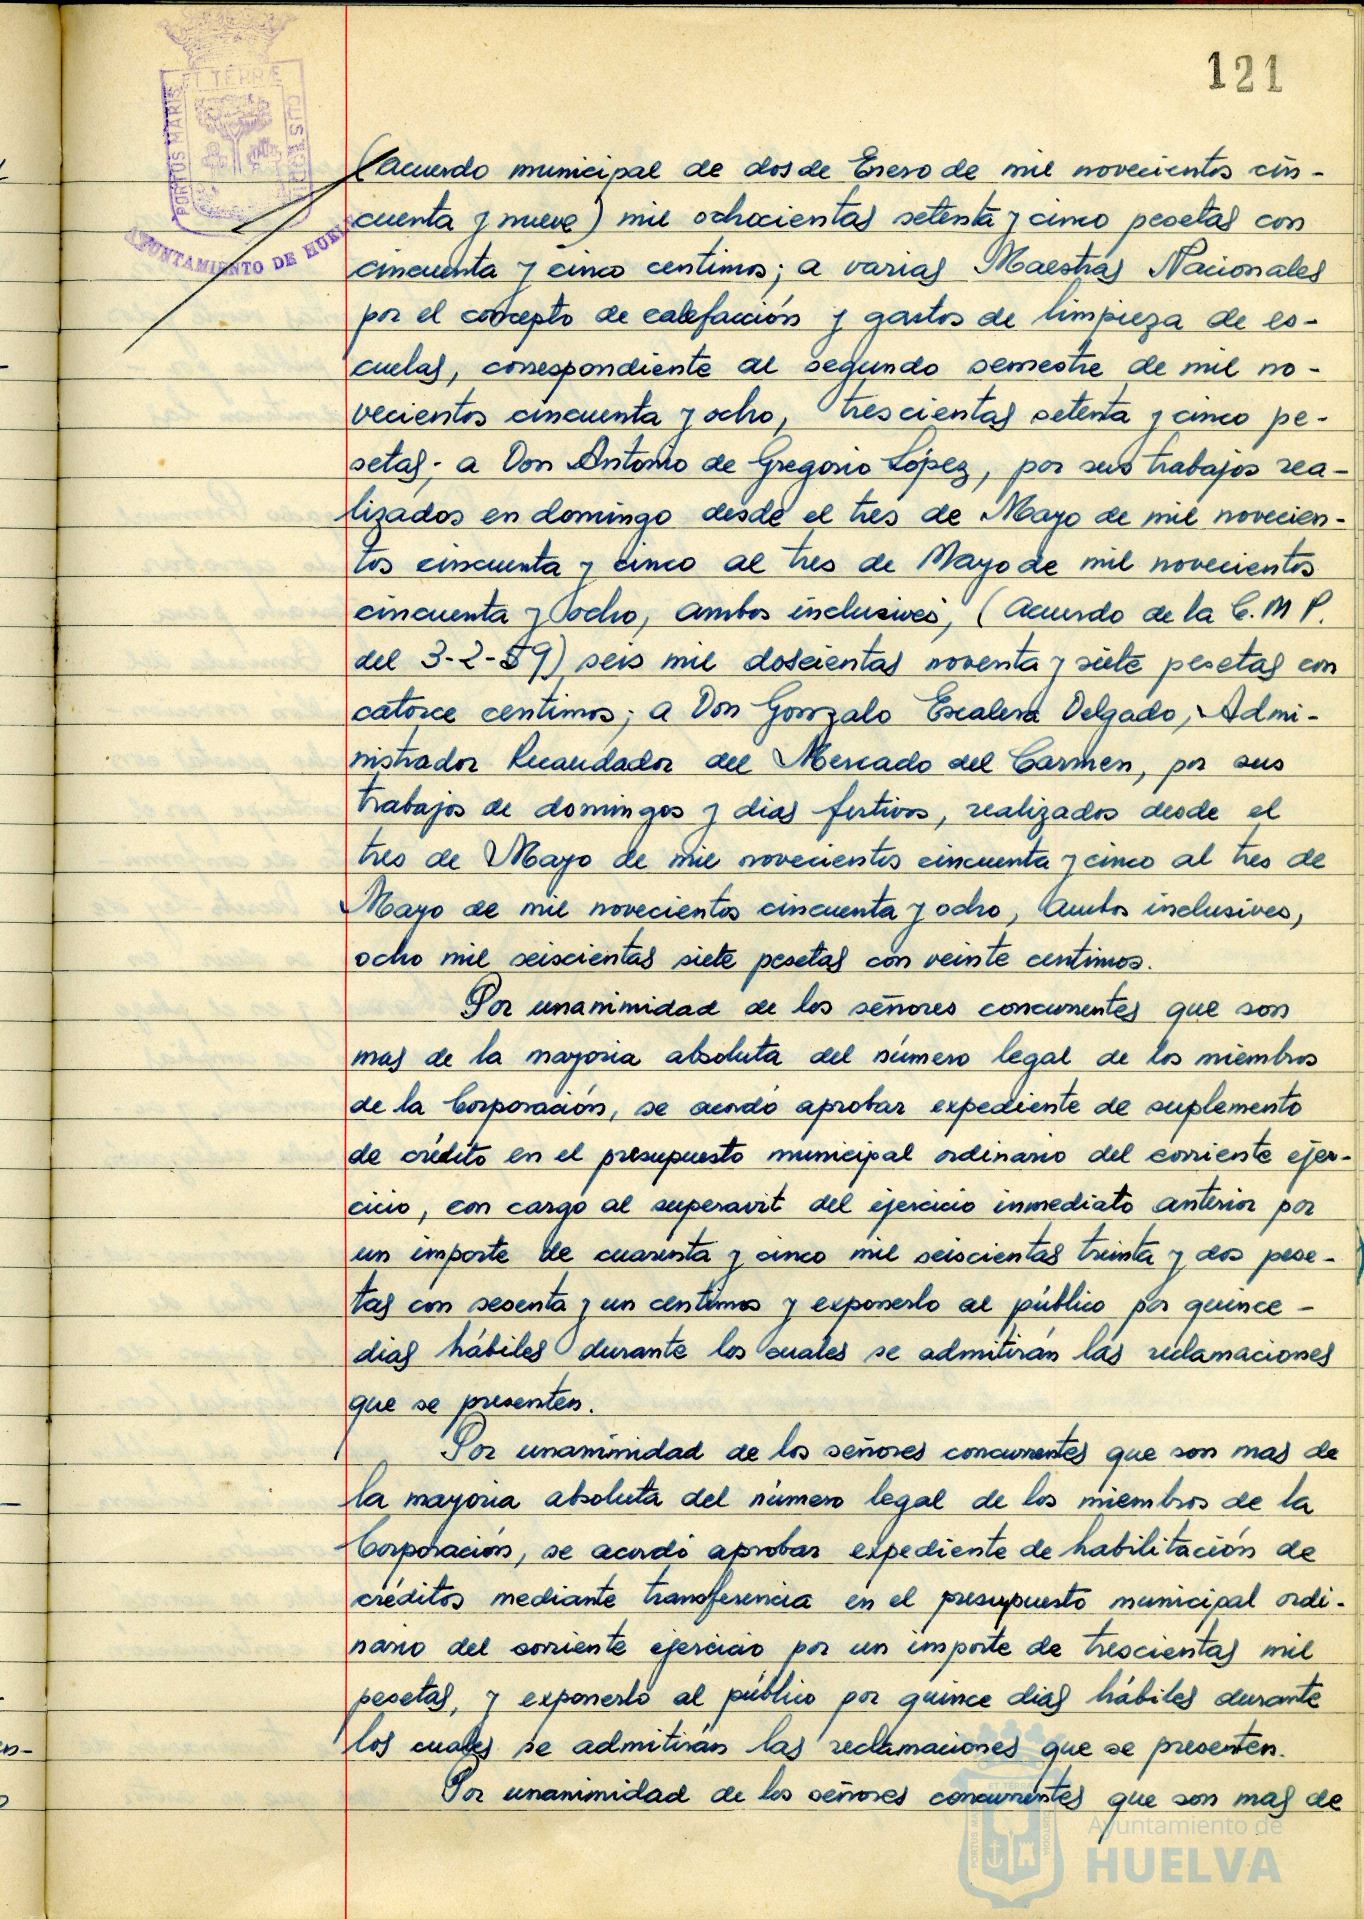 121
ET TERRÆ
PORTUS MARIS
CUSTODIA
AYUNTAMIENTO DE HUELVA
(acuerdo municipal de dos de Enero de mil novecientos cin-
cuenta y nueve) mil ochocientas setenta y cinco pesetas con
cincuenta y cinco centimos; a varias Maestras Nacionales
por el concepto de calefacción y gastos de limpieza de es-
cuelas, correspondiente al segundo semestre de mil no-
vecientos cincuenta y ocho, trescientas setenta y cinco pe-
setas; a Don Antonio de Gregorio López, por sus trabajos rea-
lizados en domingo desde el tres de Mayo de mil novecien-
tos cincuenta y cinco al tres de Mayo de mil novecientos
cincuenta y ocho, ambos inclusives, (acuerdo de la C. M P.
del 3-2-59) seis mil doscientas noventa y siete pesetas con
catorce centimos; a Don Gonzalo Escalera Delgado, Admi-
nistrador Recaudador del Mercado del Carmen, por sus
trabajos de domingos y dias festivos, realizados desde el
tres de Mayo de mil novecientos cincuenta y cinco al tres de
Mayo de mil novecientos cincuenta y ocho, ambos inclusives,
ocho mil seiscientas siete pesetas con veinte centimos.
Por unanimidad de los señores concurrentes que son
mas de la mayoria absoluta del número legal de los miembros
de la Corporación, se acordó aprobar expediente de suplemento
de crédito en el presupuesto municipal ordinario del corriente ejer-
cicio, con cargo al superavit del ejercicio inmediato anterior por
un importe de cuarenta y cinco mil seiscientas treinta y dos pese-
tas con sesenta y un centimos y exponerlo al público por quince -
dias hábiles durante los cuales se admitirán las reclamaciones
que se presenten.
Por unanimidad de los señores concurrentes que son mas de
la mayoria absoluta del número legal de los miembros de la
Corporación, se acordó aprobar expediente de habilitación de
créditos mediante transferencia en el presupuesto municipal ordi-
nario del corriente ejercicio por un importe de trescientas mil
pesetas, y exponerlo al público por quince dias hábiles durante
los cuales se admitirán las reclamaciones que se presenten.
Por unanimidad de los señores concurrentes que son mas de
Ayuntamiento de
HUELVA